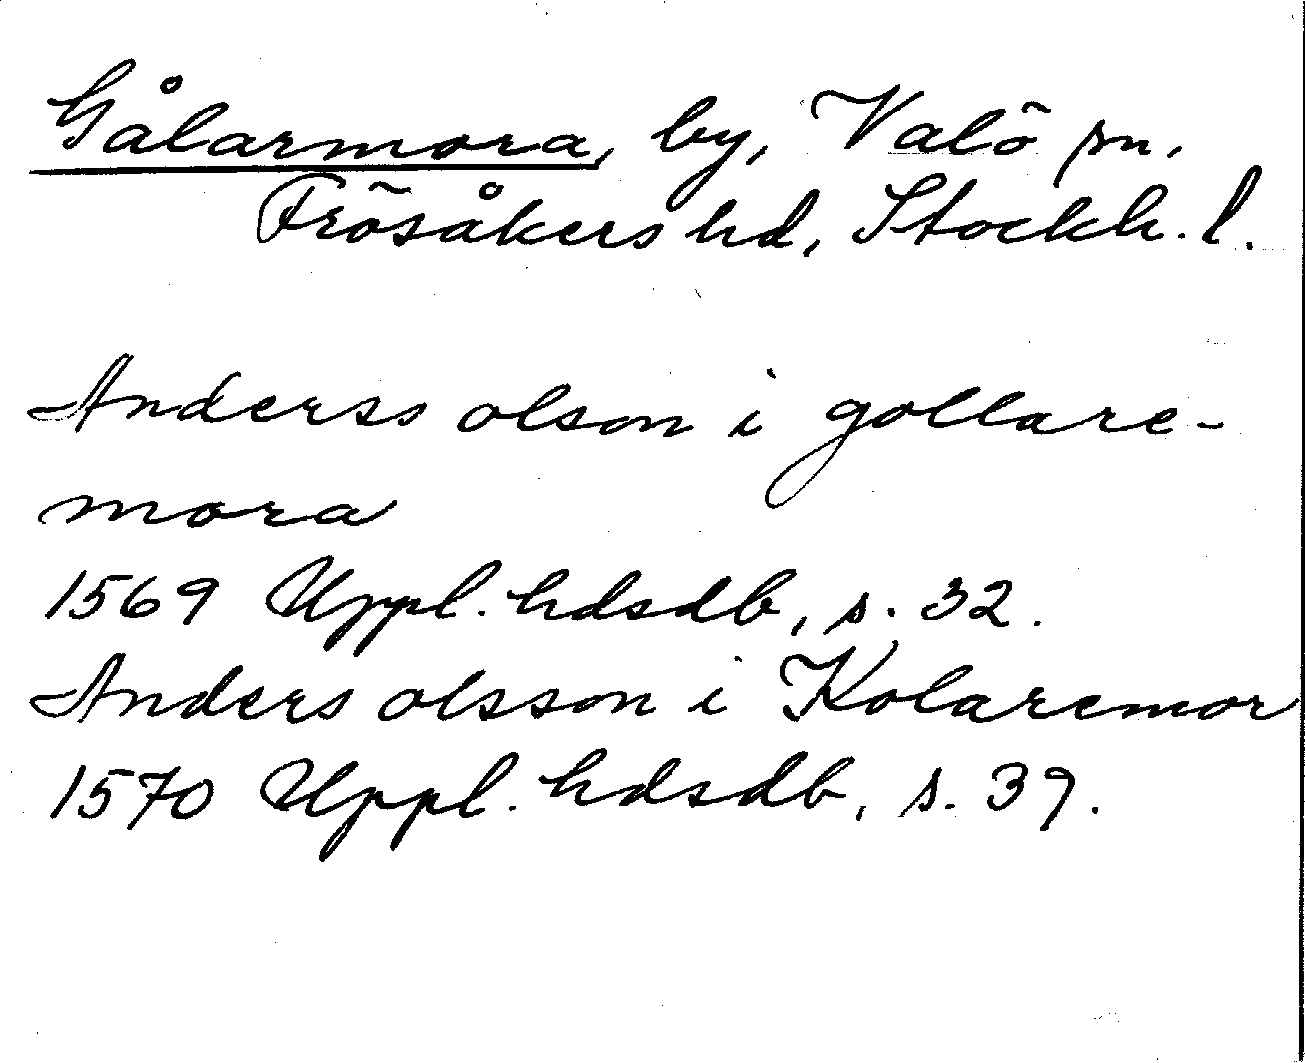 Gålarmora, by, Valö sn.
Frösåkers hd, Stockh. l.
Anderss olson i gollare-
mora
1569 Uppl. hdsdb, s. 32.
Anders olsson i Kolaremor
1570 Uppl. hdsdb, s. 39.